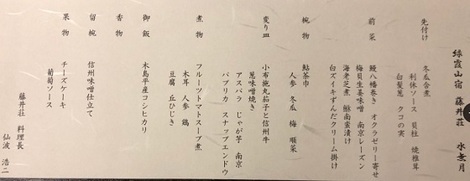 緑霞山宿 藤井荘 水無月
先付け
冬瓜含煮
利休ソース 貝柱 焼椎茸
白髪葱 クコの実
前菜
鰻八幡巻き オクラゼリー寄せ
梅貝生姜味噌 南京レーズン
海老芝煮 鮑南蛮漬け
白ズイキずんだクリーム掛け
椀物
鮎茶巾
人参 冬瓜 梅 順菜
変り皿
小布施丸茄子と信州牛
葱味噌焼き
アスパラ じゃが芋 南京
パプリカ スナップエンドウ
煮物
フルーツトマトスープ煮
木耳 人参 鶏
豆腐 丘ひじき
御飯
木島平産コシヒカリ
香物
留椀
信州味噌仕立て
果物
チーズケーキ
葡萄ソース
藤井荘 料理長
仙波 浩二